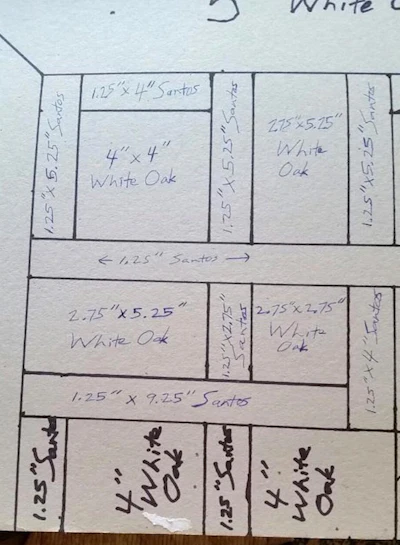 5 White
1.25" x 5.25" Santos
1.25" x 4" Santos
4" x 4"
White Oak
1.25" x 5.25" Santos
2.75" x 5.25"
White
Oak
1.25" x 5.25" Santos
← 1.25" Santos →
2.75" x 5.25"
White Oak
1.25" x 2.75"
Santos
2.75" x 2.75"
White
Oak
1.25" x 4" Santos
1.25" x 9.25" Santos
1.25" Santos
4"
White
Oak
1.25" Santos
4"
White
Oak